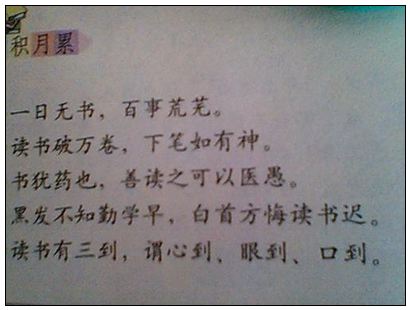 积月累
一日无书，百事荒芜。
读书破万卷，下笔如有神。
书犹药也，善读之可以医愚。
黑发不知勤学早，白首方悔读书迟。
读书有三到，谓心到、眼到、口到。